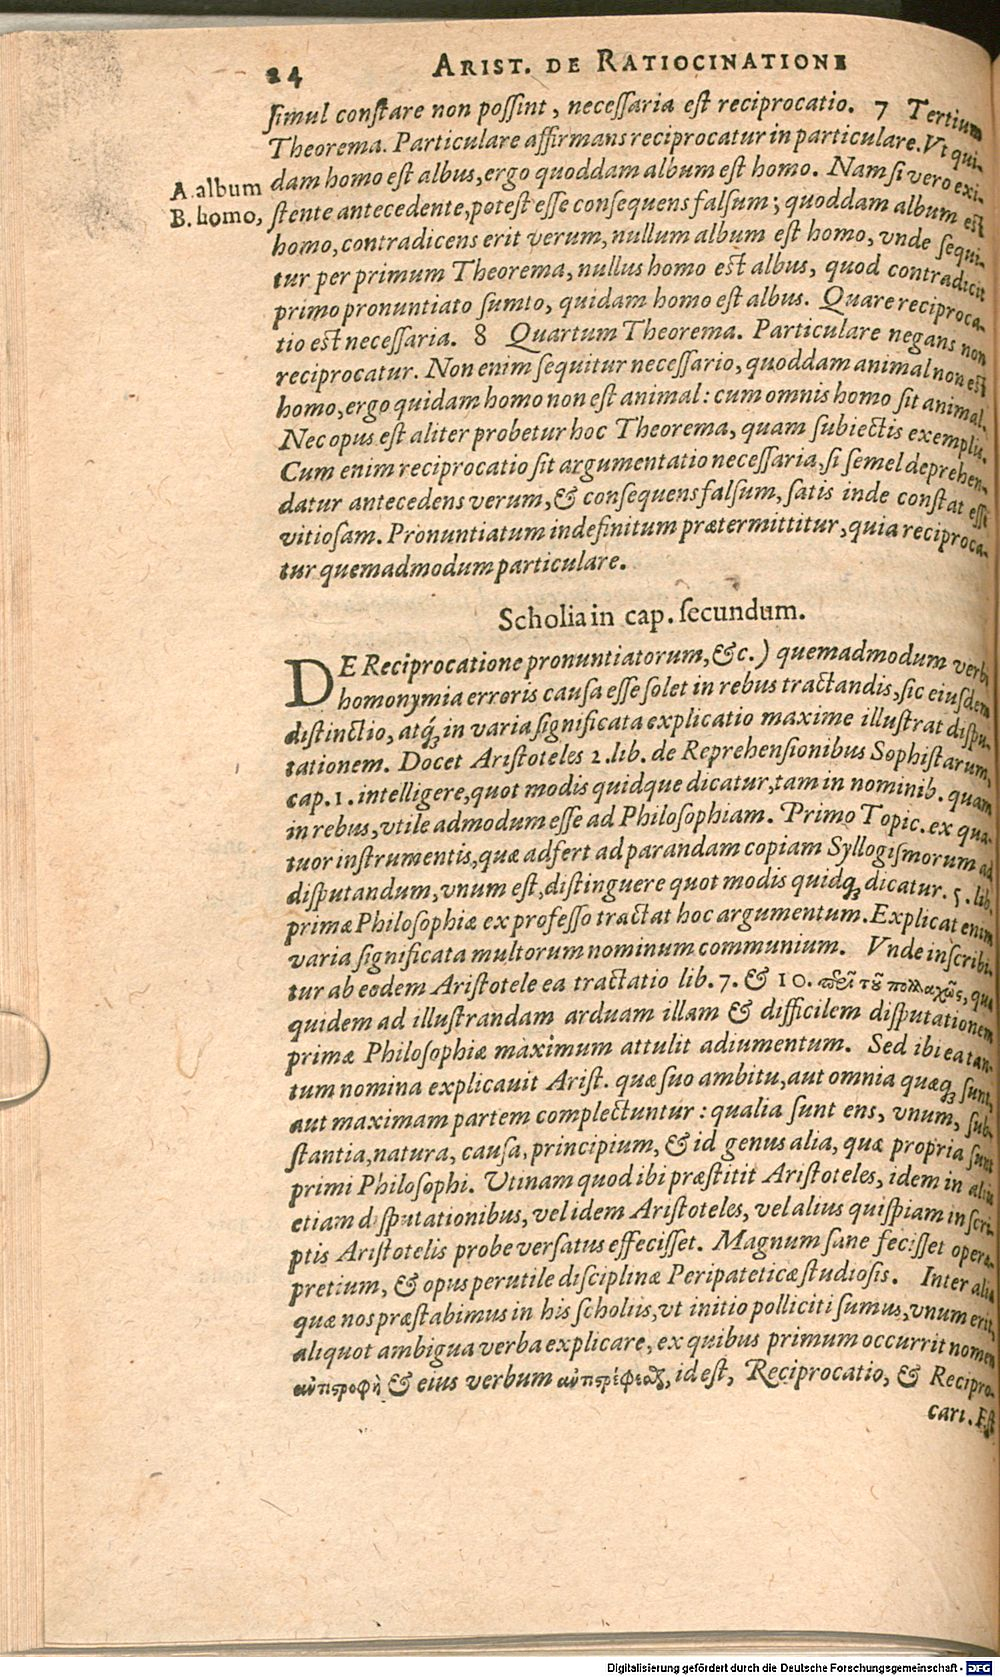 24 ARIST. DE RATIOCINATIONE
ſimul conſtare non poſſint, neceſſaria eſt reciprocatio. 7 Tertium
Theorema. Particulare affirmans reciprocatur in particulare. Vt qui-
A album
B. homo,
dam homo eſt albus, ergo quoddam album eſt homo. Nam ſi vero exi-
ſtente antecedente, poteſt eſſe conſequens falſum; quoddam album eſt
homo, contradicens erit verum, nullum album eſt homo, vnde ſequi-
tur per primum Theorema, nullus homo eſt albus, quod contradicit
primo pronuntiato ſumto, quidam homo eſt albus. Quare reciproca-
tio eſt neceſſaria. 8 Quartum Theorema. Particulare negans non
reciprocatur. Non enim ſequitur neceſſario, quoddam animal non eſt
homo, ergo quidam homo non eſt animal: cum omnis homo ſit animal.
Nec opus eſt aliter probetur hoc Theorema, quam ſubiectis exemplis.
Cum enim reciprocatio ſit argumentatio neceſſaria, ſi ſemel deprehen-
datur antecedens verum, & conſequens falſum, ſatis inde conſtat eſſe
vitioſam. Pronuntiatum indefinitum prætermittitur, quia reciproca-
tur quemadmodum particulare.
Scholia in cap. ſecundum.
DE Reciprocatione pronuntiatorum, &c.) quemadmodum verbi
homonymia erroris cauſa eſſe ſolet in rebus tractandis, ſic eiuſdem
diſtinctio, atq́; in varia ſignificata explicatio maxime illuſtrat diſpu-
tationem. Docet Ariſtoteles 2. lib. de Reprehenſionibus Sophiſtarum,
cap. 1. intelligere, quot modis quidque dicatur, tam in nominib. quam
in rebus, vtile admodum eſſe ad Philoſophiam. Primo Topic. ex qua-
tuor inſtrumentis, quæ adfert ad parandam copiam Syllogiſmorum ad
diſputandum, vnum eſt, diſtinguere quot modis quidq; dicatur. 5. lib.
primæ Philoſophiæ ex profeſſo tractat hoc argumentum. Explicat enim
varia ſignificata multorum nominum communium. Vnde inſcribi-
tur ab eodem Ariſtotele ea tractatio lib. 7. & 10. περὶ τοῦ πολλαχῶς, quæ
quidem ad illuſtrandam arduam illam & difficilem diſputationem
primæ Philoſophiæ maximum attulit adiumentum. Sed ibi ea tan-
tum nomina explicauit Ariſt. quæ ſuo ambitu, aut omnia quæq; ſunt,
aut maximam partem complectuntur: qualia ſunt ens, vnum, ſub-
ſtantia, natura, cauſa, principium, & id genus alia, quæ propria ſunt
primi Philoſophi. Vtinam quod ibi præſtitit Ariſtoteles, idem in aliis
etiam diſputationibus, vel idem Ariſtoteles, vel alius quiſpiam in ſcri-
ptis Ariſtotelis probe verſatus effeciſſet. Magnum ſane feciſſet operæ-
pretium, & opus perutile diſciplinæ Peripateticæ ſtudioſis. Inter alia
quæ nos præſtabimus in his ſcholiis, vt initio polliciti ſumus, vnum erit,
aliquot ambigua verba explicare, ex quibus primum occurrit nomen
ἀντιστροφὴ & eius verbum ἀντιστρέφεσθαι, id eſt, Reciprocatio, & Recipro-
cari. Eſt
Digitalisierung gefördert durch die Deutsche Forschungsgemeinschaft - DFG